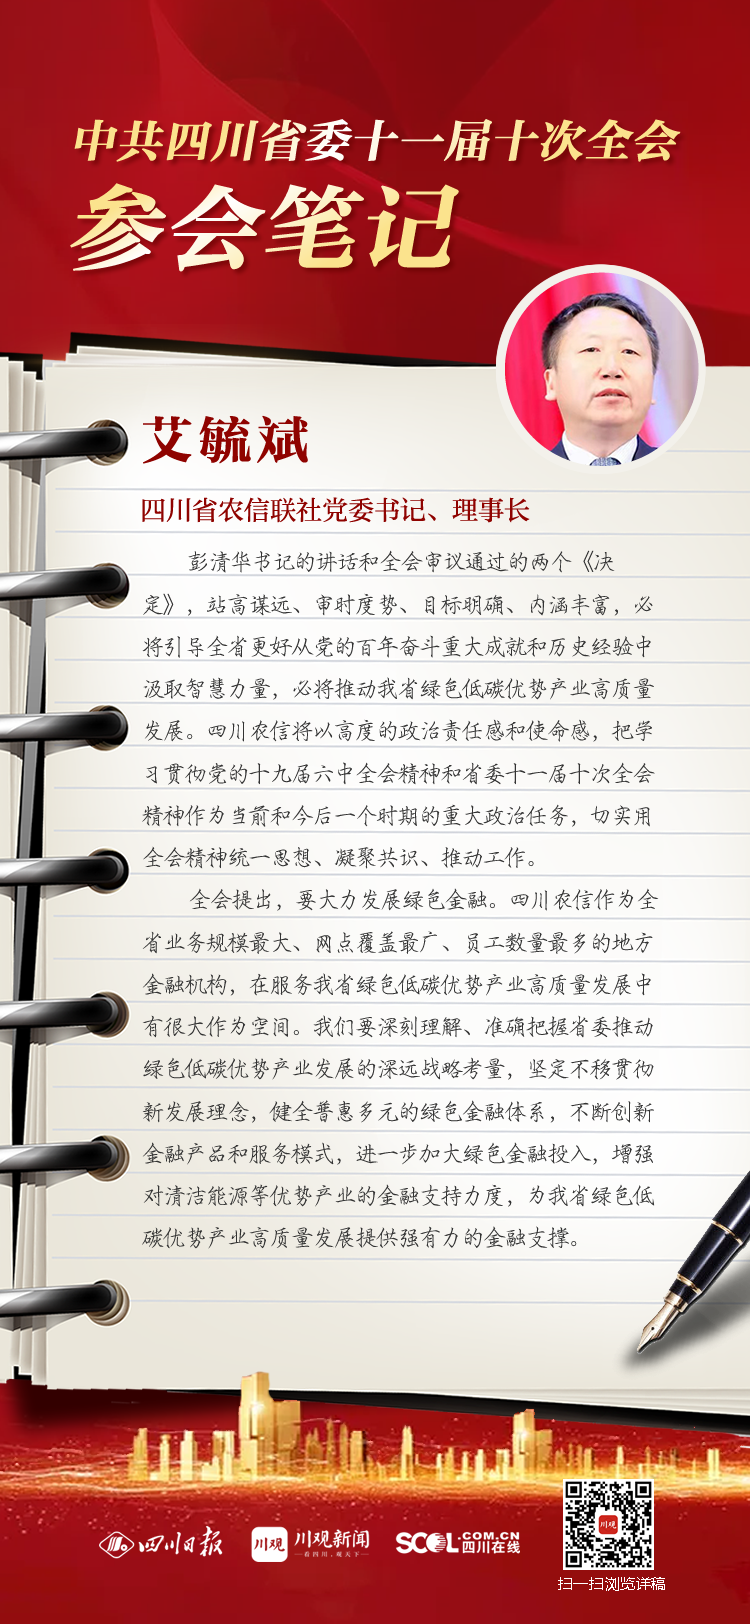 中共四川省委十一届十次全会
参会笔记
艾毓斌
四川省农信联社党委书记、理事长
彭清华书记的讲话和全会审议通过的两个《决
定》，站高谋远、审时度势、目标明确、内涵丰富，必
将引导全省更好从党的百年奋斗重大成就和历史经验中
汲取智慧力量，必将推动我省绿色低碳优势产业高质量
发展。四川农信将以高度的政治责任感和使命感，把学
习贯彻党的十九届六中全会精神和省委十一届十次全会
精神作为当前和今后一个时期的重大政治任务，切实用
全会精神统一思想、凝聚共识、推动工作。
全会提出，要大力发展绿色金融。四川农信作为全
省业务规模最大、网点覆盖最广、员工数量最多的地方
金融机构，在服务我省绿色低碳优势产业高质量发展中
有很大作为空间。我们要深刻理解、准确把握省委推动
绿色低碳优势产业发展的深远战略考量，坚定不移贯彻
新发展理念，健全普惠多元的绿色金融体系，不断创新
金融产品和服务模式，进一步加大绿色金融投入，增强
对清洁能源等优势产业的金融支持力度，为我省绿色低
碳优势产业高质量发展提供强有力的金融支撑。
四川日报
川观
川观新闻
看四川，观天下
SCOL.COM.CN
四川在线
川观
扫一扫浏览详稿